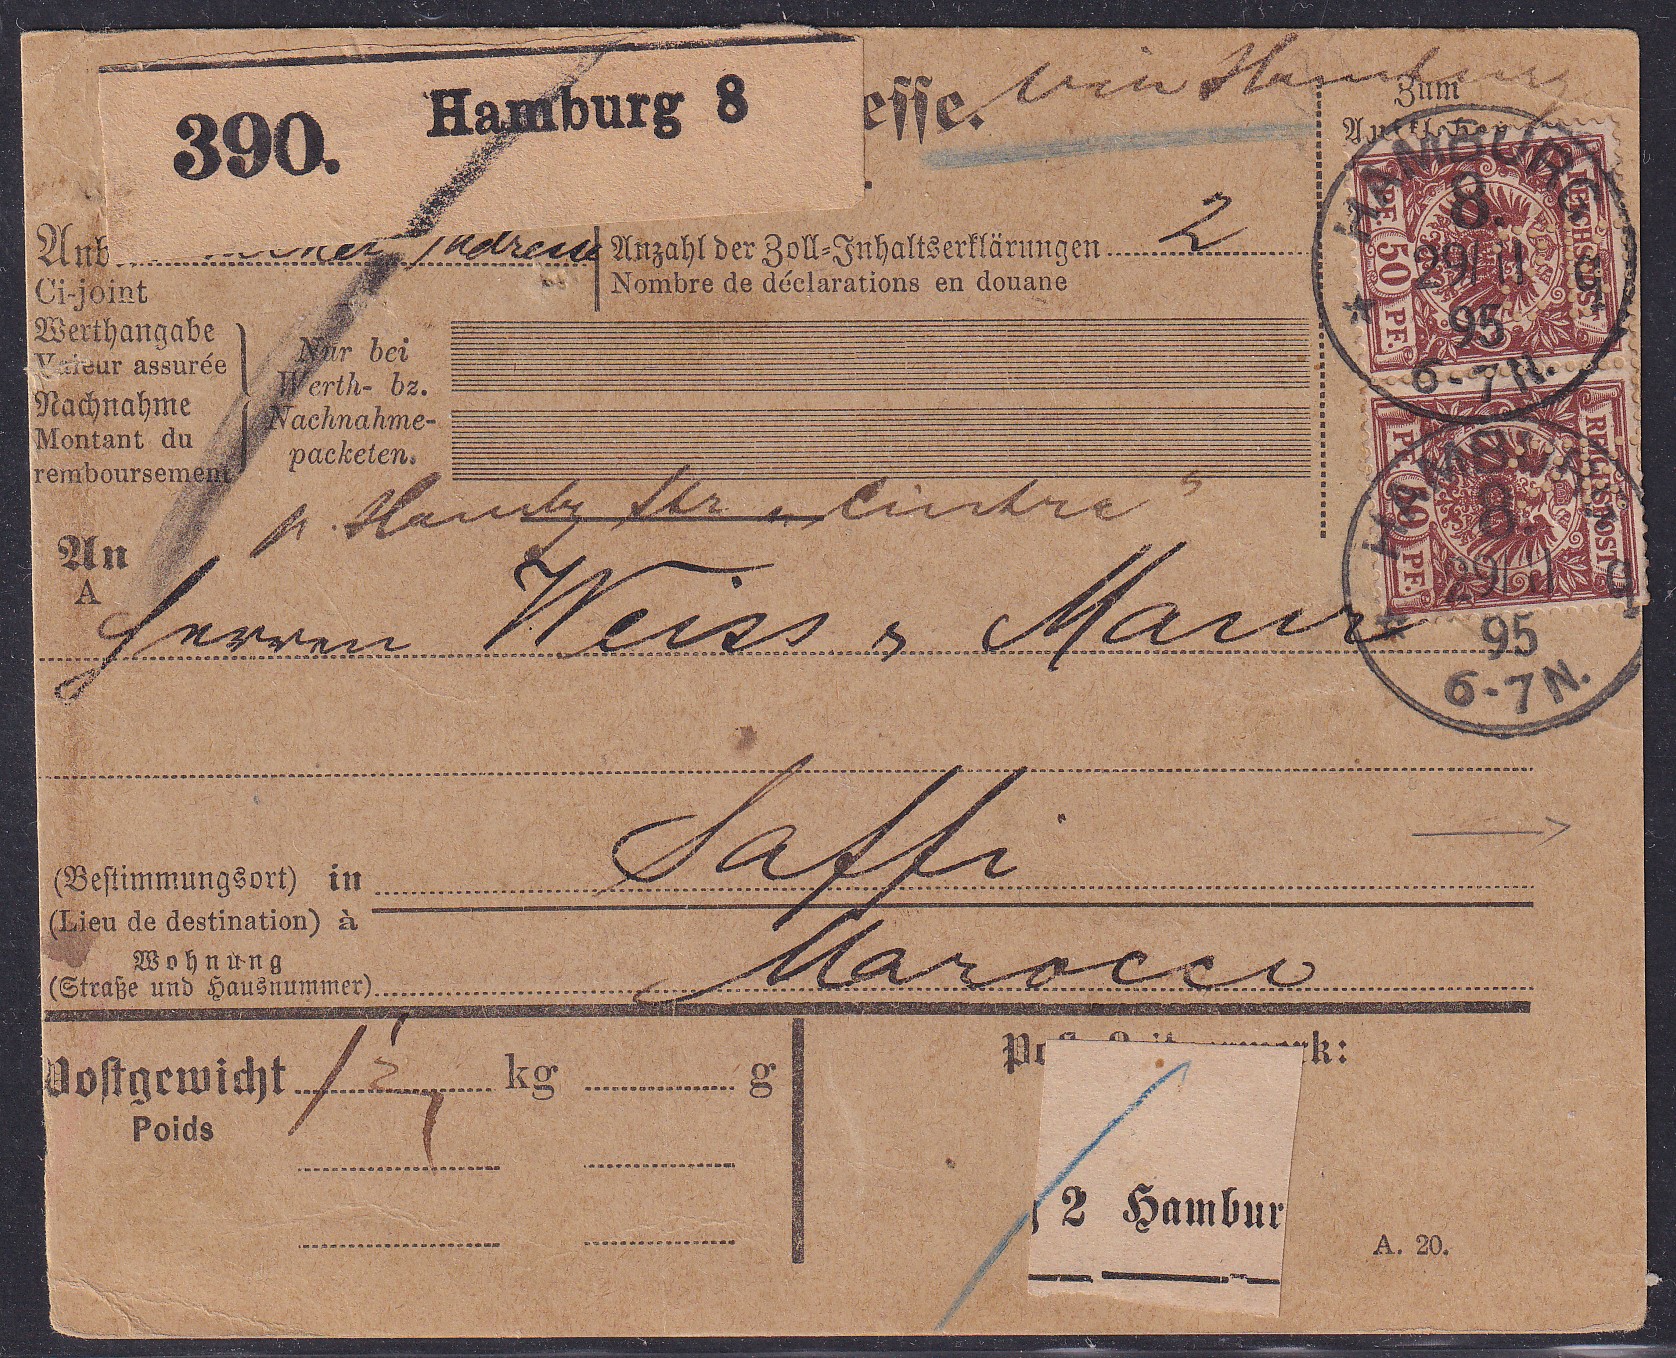 390. Hamburg 8
esse. via Hamburg
Zum
Aufkleben
Anb
adresse
Ci-joint
Anzahl der Zoll-Inhaltserklärungen 2
Nombre de déclarations en douane
Werthangabe
Valeur assurée
Nachnahme
Montant du
remboursement
Nur bei
Werth- bz.
Nachnahme-
packeten.
REICHSPOST
50 PF. 50 PF.
HAMBURG
8.
29/11
95
6-7N.
REICHSPOST
50 PF. 50 PF.
HAMBURG
8.
29/11
95
6-7N.
p. Hambg Str „Cintra"
An
A
Herren Weiss & Maur
(Bestimmungsort) in Saffi
(Lieu de destination) à
Wohnung
(Straße und Hausnummer) Marocco
Postgewicht 1 kg g
Poids
Po rk:
2 Hambur
A. 20.